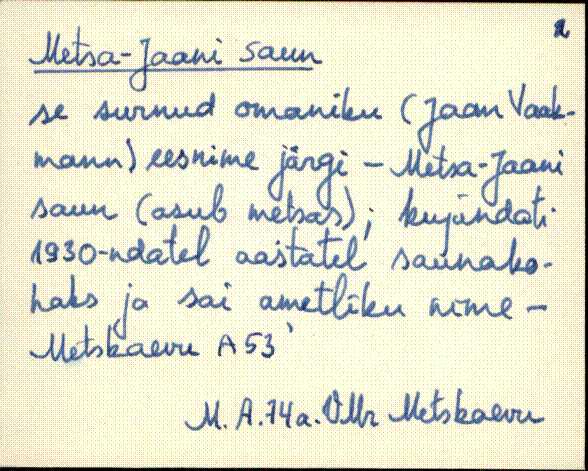 2
Metsa-Jaani saun
se surnud omaniku (Jaan Vaak-
mann) eesnime järgi – Metsa-Jaani
saun (asub metsas); kujundati
1930-ndatel aastatel saunako-
haks ja sai ametliku nime –
Metskaevu A 53
M. A. 74 a. VMr Metskaevu